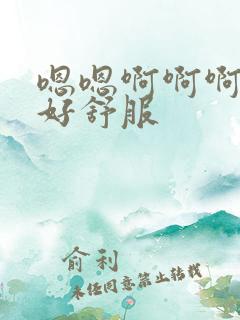 嗯嗯啊啊啊
好舒服
俞利
未经同意禁止转载